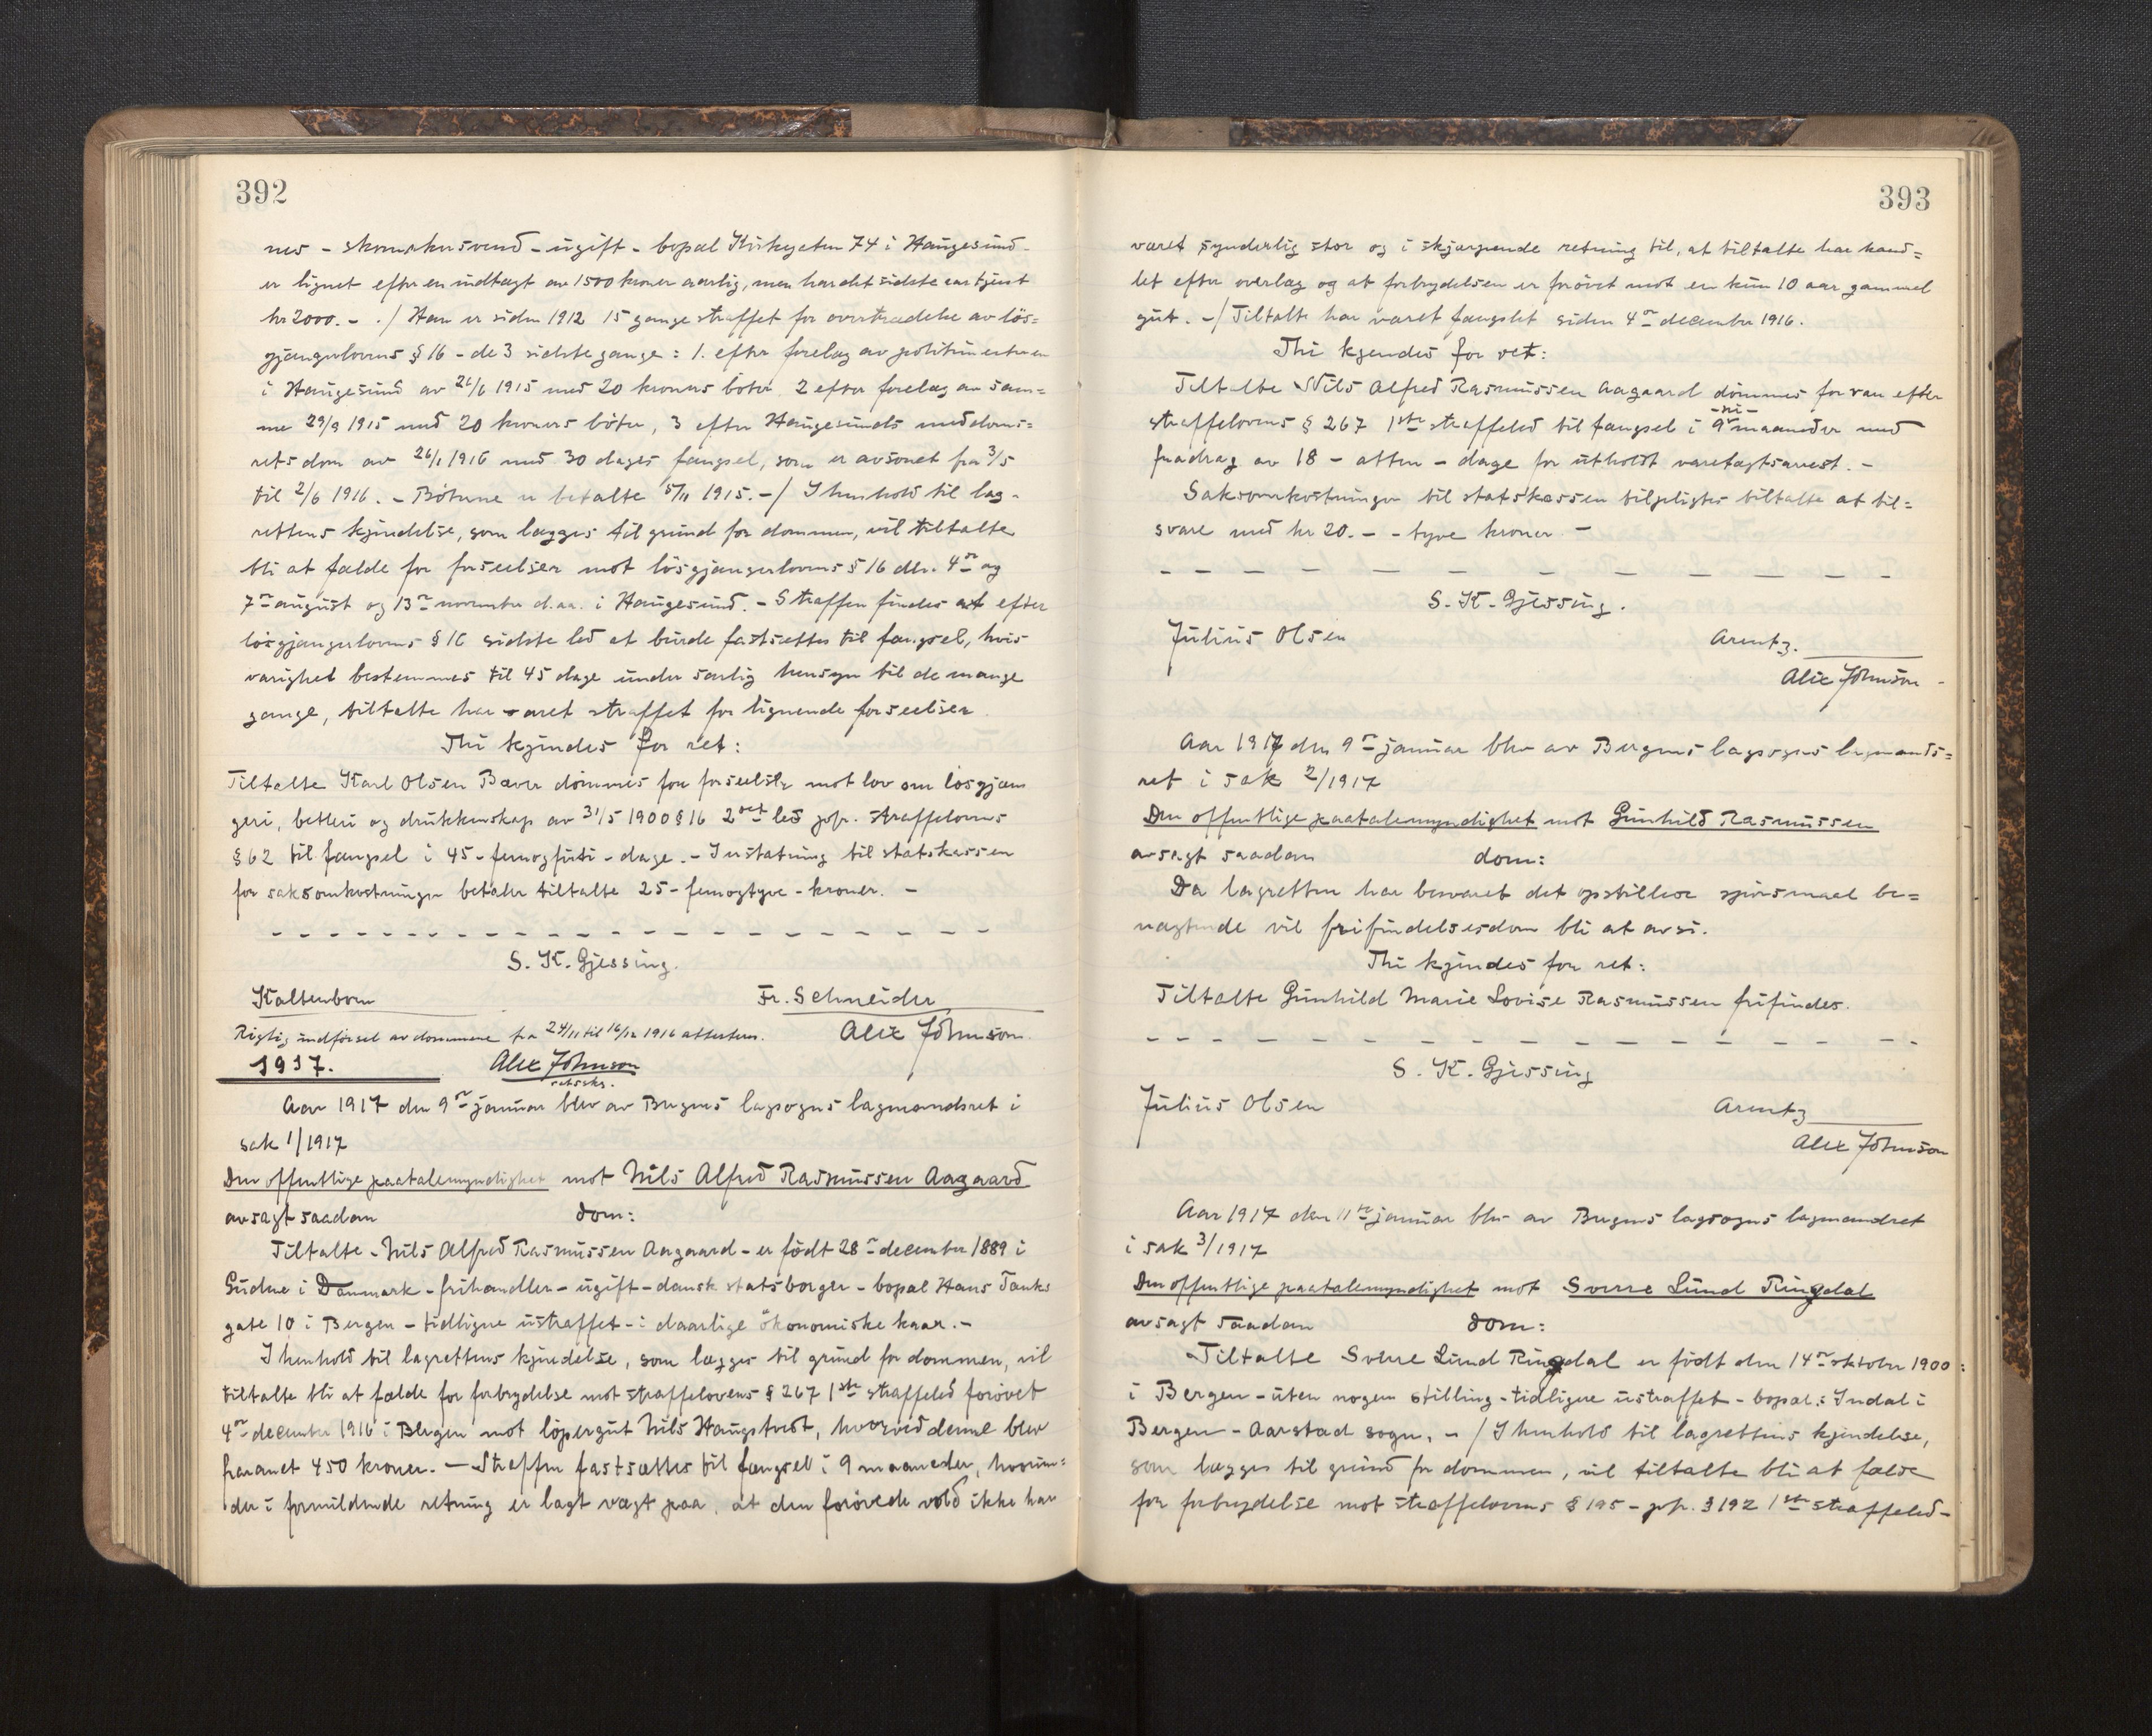 392
nes - skomakersvend - ugift - bopæl Kirkegaten 74 i Haugesund -
er lignet efter en indtægt av 1500 kroner aarlig, men har det sidste aar tjent
kr 2000. - ./ Han er siden 1912 15 gange straffet for overtrædelse av løs=
gjængerlovens § 16 - de 3 sidste gange: 1. efter forelæg av politimesteren
i Haugesund av 26/6 1915 med 20 kroners bøter 2 efter forelæg av sam=
me 29/9 1915 med 20 kroners bøter, 3 efter Haugesunds meddoms=
rets dom av 26/1 1916 med 30 dages fængsel, som er avsonet fra 3/5
til 2/6 1916. - Bøterne er betalte 5/11 1915. -/ I henhold til lag-
rettens kjendelse, som lægges til grund for dommen, vil tiltalte
bli at fælde for forseelser mot løsgjængerlovens § 16 den 4de og
7de august og 13de november d.aa. i Haugesund. - Straffen findes at efter
løsgjængerlovens § 16 sidste led at burde fastsættes til fængsel, hvis
varighet bestemmes til 45 dage under særlig hensyn til de mange
gange, tiltalte har været straffet for lignende forseelser.
Thi kjendes for ret:
Tiltalte Karl Olsen Bæver dømmes for forseelser mot lov om løsgjæn
geri, betleri og drukkenskap av 31/5 1900 § 16 2det led jvfr. straffelovens
§ 62 til fængsel i 45 - femogfirti - dage. - Erstatning til statskassen
for saksomkostninger betaler tiltalte 25 - femogtyve - kroner. -
S. K. Gjessing.
Kaltenborn Fr. Schneider
Rigtig indførsel av dommene fra 24/11 til 16/12 1916 attesteres. Alex Johnson.
1917. Alex Johnson
retsskr.
Aar 1917 den 9de januar blev av Bergens lagsogns lagmandsret i
sak 1/1917
Den offentlige paatalemyndighet mot Nils Alfred Rasmussen Aagaard
avsagt saadan dom:
Tiltalte - Nils Alfred Rasmussen Aagaard - er født 28de december 1889 i
Gudne i Danmark - frihandler - ugift - dansk statsborger - bopæl Hans Tanks
gate 10 i Bergen - tidligere ustraffet - i daarlige økonomiske kaar. -
I henhold til lagrettens kjendelse, som lægges til grund for dommen, vil
tiltalte bli at fælde for forbrydelse mot straffelovens § 267 1ste straffeled forøvet
4de december 1916 i Bergen mot løpergut Nils Haugstvedt, hvorved denne blev
fraranet 450 kroner. - Straffen fastsættes til fængsel i 9 maaneder, hvorun=
der i formildende retning er lagt vægt paa, at den forøvede vold ikke har
393
været synderlig stor og i skjærpende retning til, at tiltalte har hand=
let efter overlæg og at forbrydelsen er forøvet mot en kun 10 aar gammel
gut. -/ Tiltalte har været fængslet siden 4de december 1916.
Thi kjendes for ret:
Tiltalte Nils Alfred Rasmussen Aagaard dømmes for ran efter
-ni-
straffelovens § 267 1ste straffeled til fængsel i 9 maaneder med
fradrag av 18 - atten - dage for utholdt varetægtsarrest. -
Saksomkostninger til statskassen tilpligtes tiltalte at til=
svare med kr 20. - - tyve kroner -
S. K. Gjessing.
Julius Olsen Arentz.
Alex Johnson -
Aar 1917 den 9de januar blev av Bergens lagsogns lagmands=
ret i sak 2/1917
Den offentlige paatalemyndighet mot Gunhild Rasmussen
avsagt saadan dom:
Da lagretten har besvaret det opstillede spørsmaal be=
nægtende vil frifindelsesdom bli at avsi.
Thi kjendes for ret:
Tiltalte Gunhild Marie Lovise Rasmussen frifindes.
S. K. Gjessing
Julius Olsen Arentz
Alex Johnson
Aar 1917 den 11te januar blev av Bergens lagsogns lagmandsret
i sak 3/1917
Den offentlige paatalemyndighet mot Sverre Lund Ringdal
avsagt saadan dom:
Tiltalte Sverre Lund Ringdal er født den 14de oktober 1900
i Bergen - uten nogen stilling - tidligere ustraffet - bopæl: Indal i
Bergen - Aarstad sogn. - / I henhold til lagrettens kjendelse,
som lægges til grund for dommen, vil tiltalte bli at fælde
for forbrydelse mot straffelovens § 195 - jvfr. § 192 1ste straffeled -